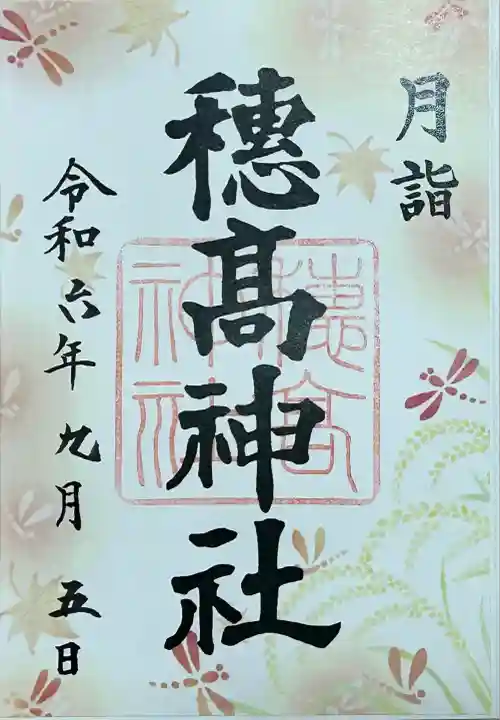 月詣
穗髙神社
穂高神社
令和六年九月五日